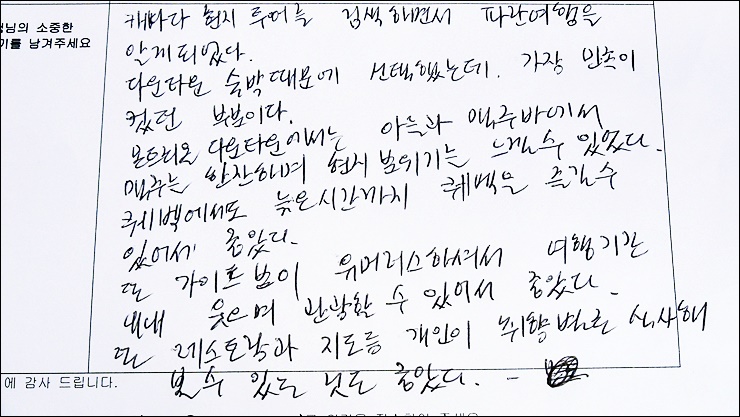 객님의 소중한
기를 남겨주세요
캐나다 현지 투어를 검색하면서 파란여행을
알게되었다.
다운타운 숙박때문에 선택했는데. 가장 만족이
컸던 부분이다.
몬트리올 다운타운에서는 아들과 맥주바에서
맥주는 한잔하며 현지 분위기는 느낄수 있었다.
퀘벡에서도 늦은시간까지 퀘벡을 즐길수
있어서 좋았다.
또 가이드분이 유머러스하셔서 여행기간
내내 웃으며 관광할 수 있어서 좋았다.
또 레스토랑과 지도등 개인이 취향별로 식사해
볼 수 있는 것도 좋았다. -
에 감사 드립니다.